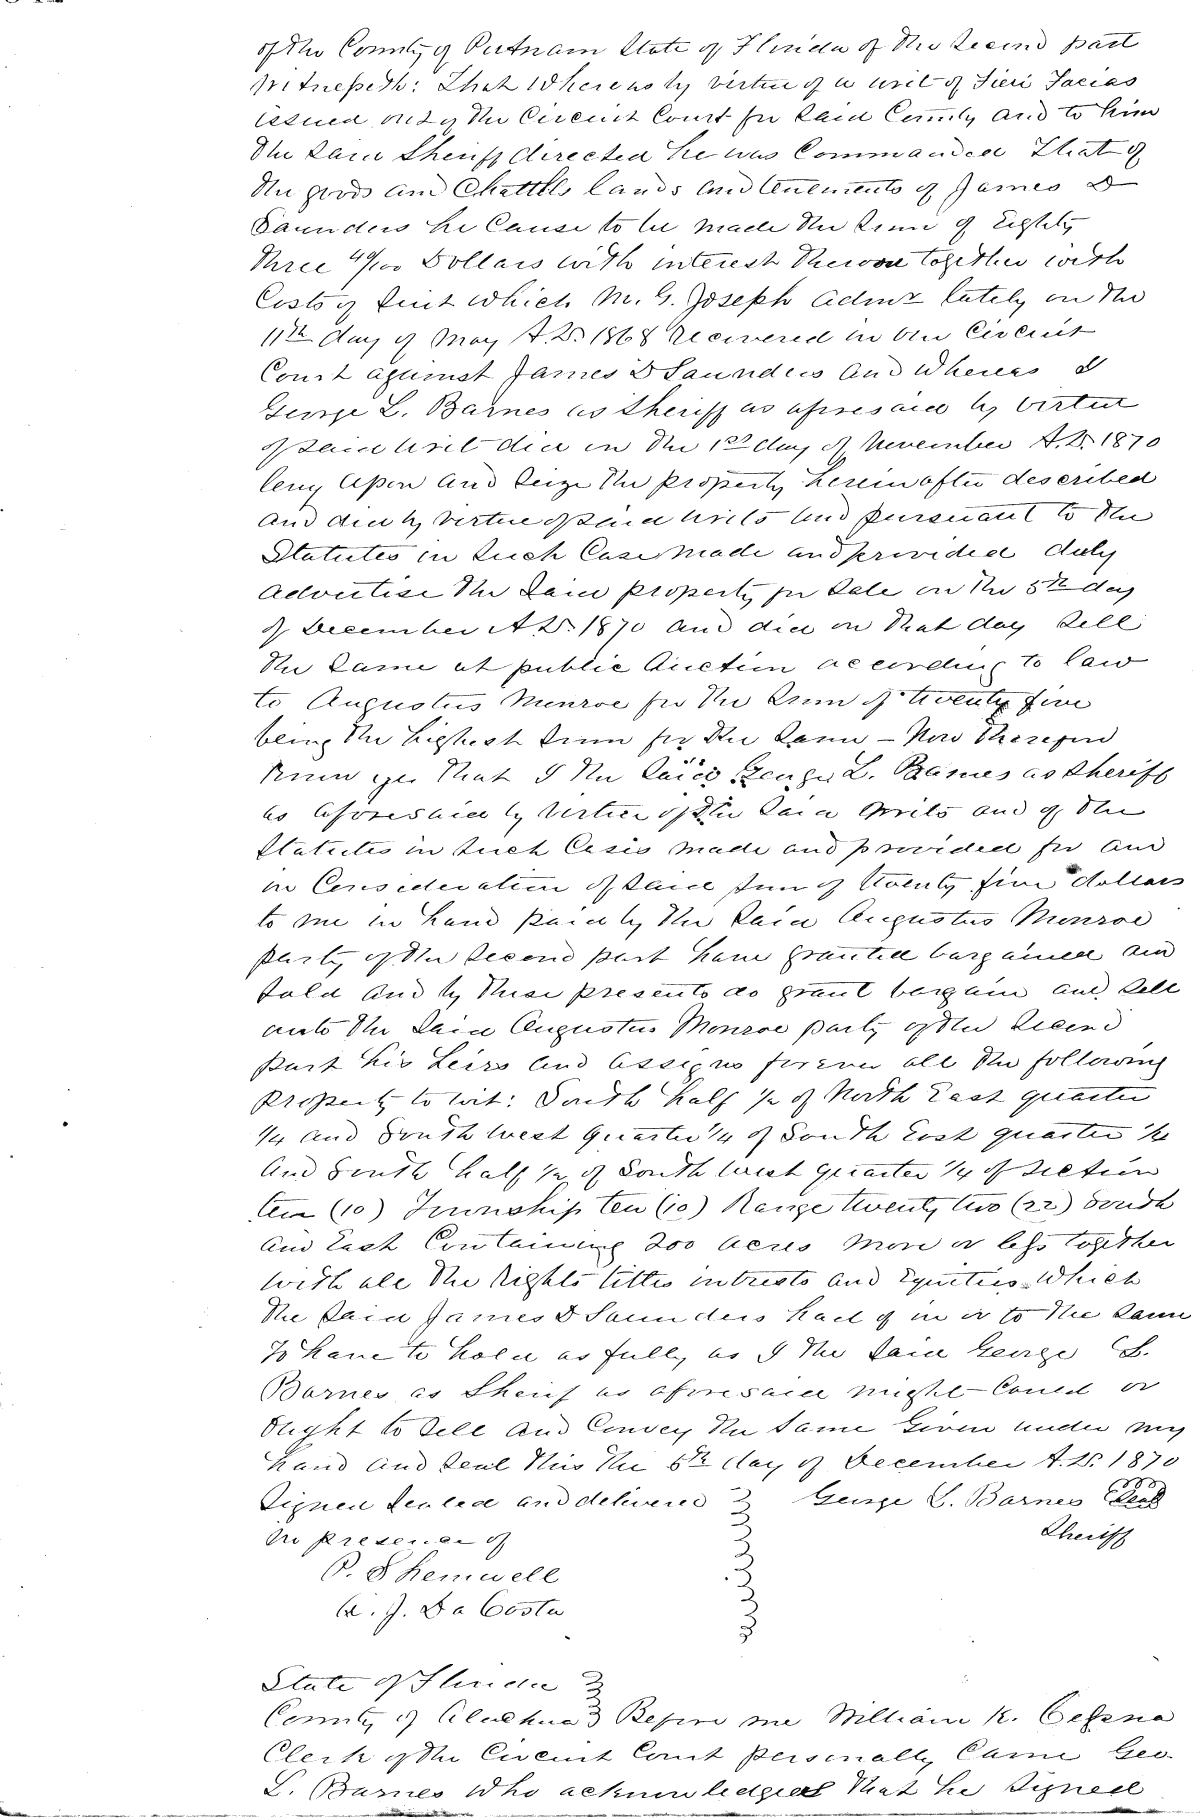 of the County of Putnam State of Florida of the Second part
Witnesseth: That Whereas by virtue of a writ of Fieri Facias
issued out of the Circuit Court for Said County and to him
the Said Sheriff directed he was Commanded That of
the goods and Chattles lands and tenements of James D
Saunders he Cause to be made the Sum of Eighty
Three 49/100 Dollars with interest thereon together with
Costs of Suit which M. G. Joseph Admr lately on the
11th day of May A.D. 1868 recovered in our Circuit
Court against James D Saunders And Whereas I
George L. Barnes as Sheriff as aforesaid by virtue
of Said writ did on the 1st day of November A.D. 1870
levy upon and Seize the property herein after described
and did by virtue of Said writs and pursuant to the
Statutes in Such Case made and provided duly
advertise the Said property for Sale on the 5th day
of December A.D. 1870 and did on that day Sell
the Same at public Auction according to law
to Augustus Monroe for the Sum of twenty five
being the highest Sum for the Same – Now Therefore
Know ye That I the Said George L. Barnes as Sheriff
as aforesaid by virtue of the Said Writs and of the
Statutes in Such Cases made and provided for and
in Consideration of Said Sum of twenty five dollars
to me in hand paid by the Said Augustus Monroe
party of the Second part have granted bargained and
Sold and by these presents do grant bargain and Sell
unto the Said Augustus Monroe party of the Second
part his heirs and assigns forever all the following
property to wit: South half 1/2 of North East quarter
1/4 and South West quarter 1/4 of South East quarter 1/4
and South half 1/2 of South West quarter 1/4 of Section
ten (10) Township ten (10) Range twenty two (22) South
and East Containing 200 acres more or less together
with all the Rights titles intrests and Equities which
the Said James D Saunders had of in or to the Same
To have to hold as fully as I the Said George L.
Barnes as Sherif as aforesaid might Could or
Ought to Sell and Convey the Same Given under my
hand and Seal this the 5th day of December A.D. 1870
Signed Sealed and delivered George L. Barnes Seal
in presence of Sheriff
P. Shemwell
A. J. Da Costa
State of Florida
County of Alachua Before me William K. Cessna
Clerk of the Circuit Court personally Came Geo.
L. Barnes who acknowledged that he Signed